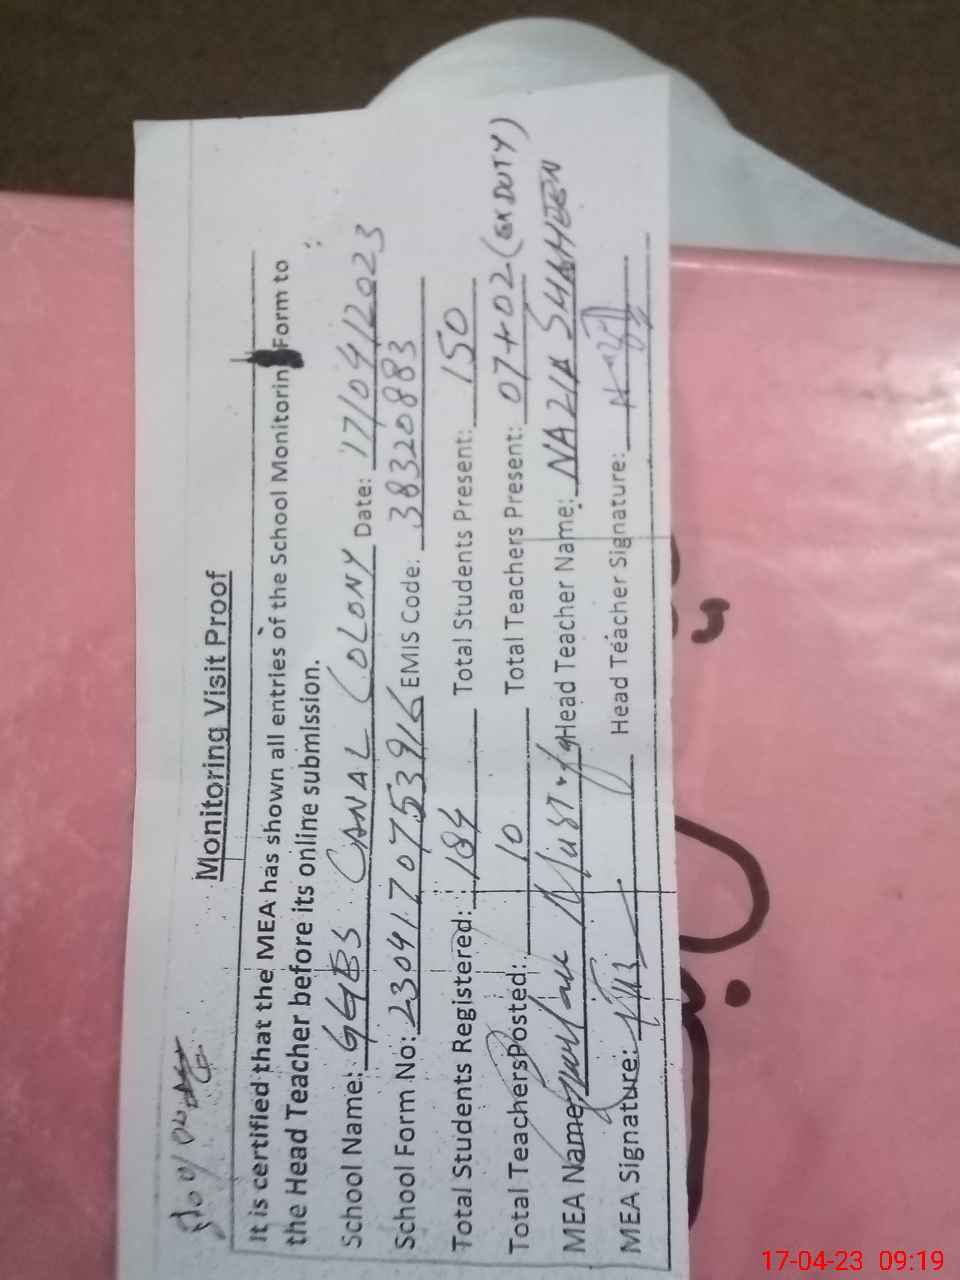 Monitoring Visit Proof
It is certified that the MEA has shown all entries of the School Monitoring Form to
the Head Teacher before its online submission.
School Name: GGES CANAL COLONY Date: 17/04/2023
School Form No: 23041707753916 EMIS Code: 38320883
Total Students Registered: 184 Total Students Present: 150
Total Teachers Posted: 10 Total Teachers Present: 07+02 (EX DUTY)
MEA Name: Mustafa Head Teacher Name: NAZIA SHAHEEN
MEA Signature: Head Teacher Signature:
17-04-23 09:19